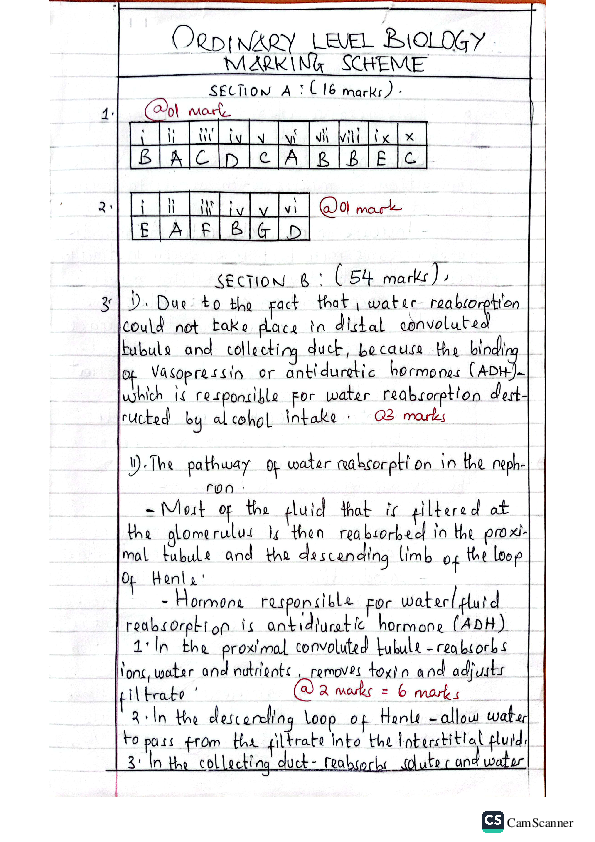 ORDINARY LEVEL BIOLOGY
MARKING SCHEME
SECTION A : (16 marks).
1. @01 mark
i ii iii iv v vi vii viii ix x
B A C D C A B B E C
2. i ii iii iv v vi @01 mark
E A F B G D
SECTION B : (54 marks).
3 i). Due to the fact that, water reabsorption
could not take place in distal convoluted
tubule and collecting duct, because the binding
of Vasopressin or antiduretic hormones (ADH)-
which is responsible for water reabsorption dest-
ructed by alcohol intake. 03 marks
ii). The pathway of water reabsorption in the neph-
ron.
- Most of the fluid that is filtered at
the glomerulus is then reabsorbed in the proxi-
mal tubule and the descending limb of the loop
of Henle.
- Hormone responsible for water/fluid
reabsorption is antidiuretic hormone (ADH)
1. In the proximal convoluted tubule - reabsorbs
ions, water and nutrients, removes toxin and adjusts
filtrate. @ 2 marks = 6 marks
2. In the descending loop of Henle - allow water
to pass from the filtrate into the interstitial fluid.
3. In the collecting duct - reabsorbs solutes and water
CS CamScanner